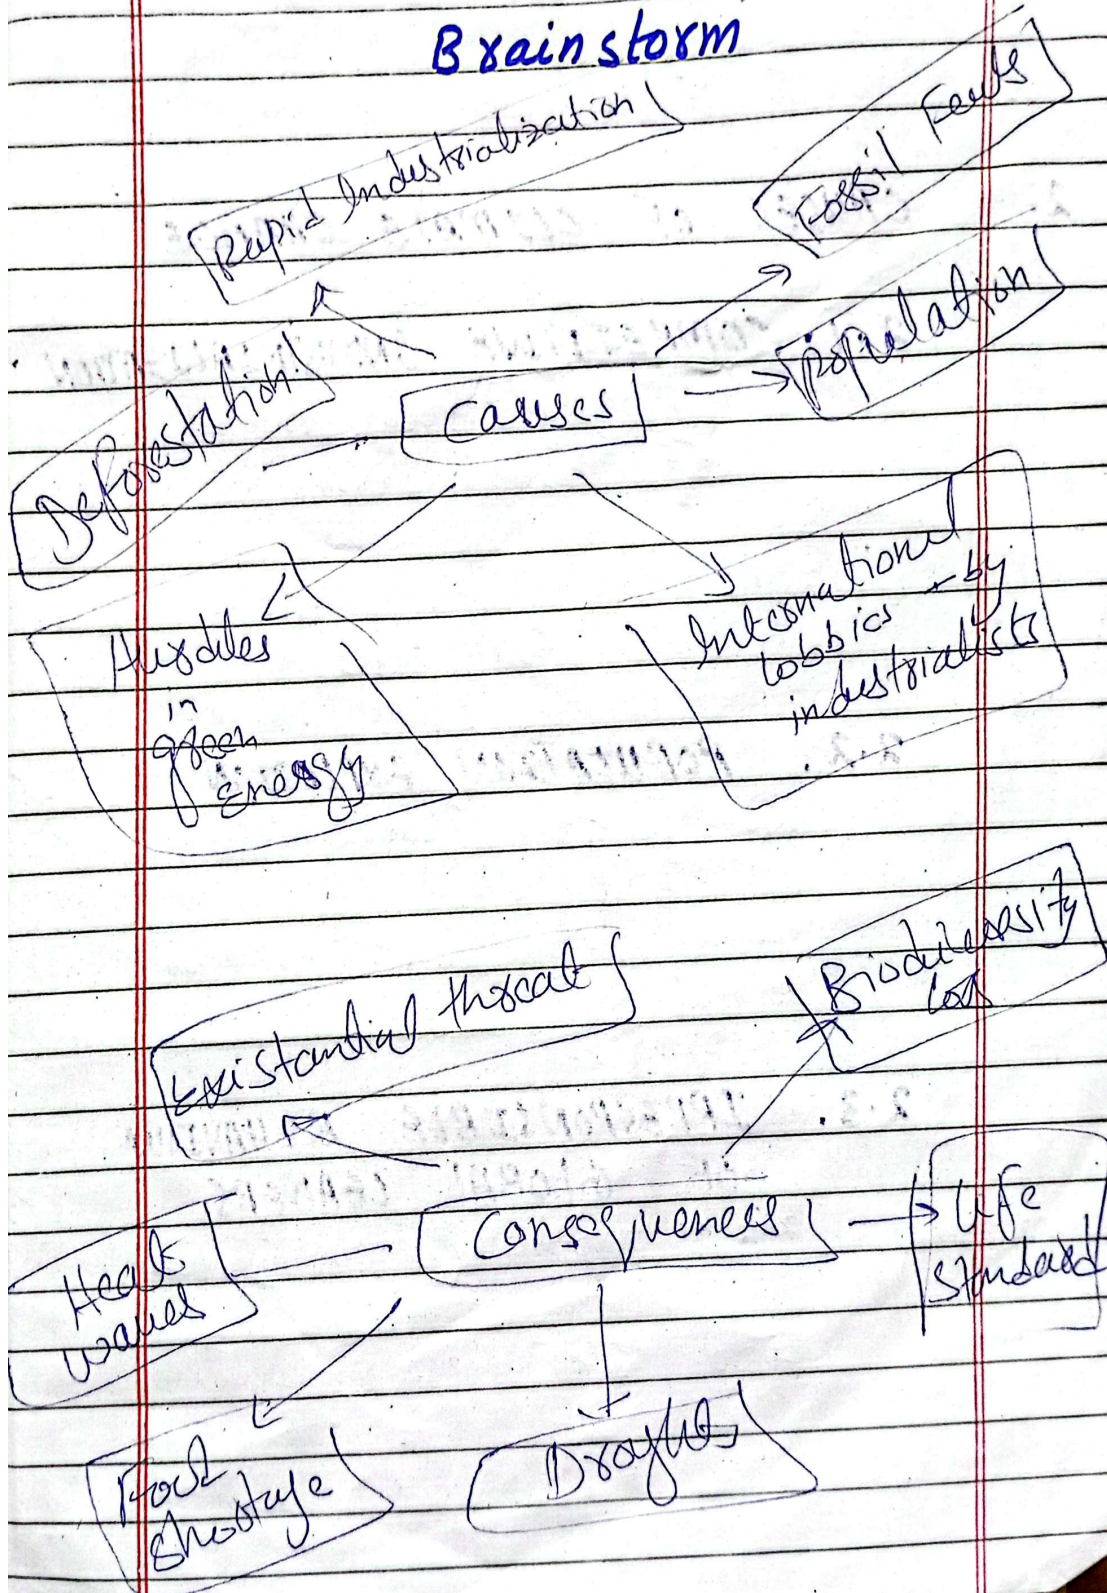 Brainstorm
Rapid Industrialization
Fossil Feuls
Population
Causes
Deforestation
Hurdles
in
green
Energy
International
lobbies - by
industrialists
Existantial threat
Biodiversity
loss
Consequences
Life
standard
Heat
waves
Food
shortage
Droughts